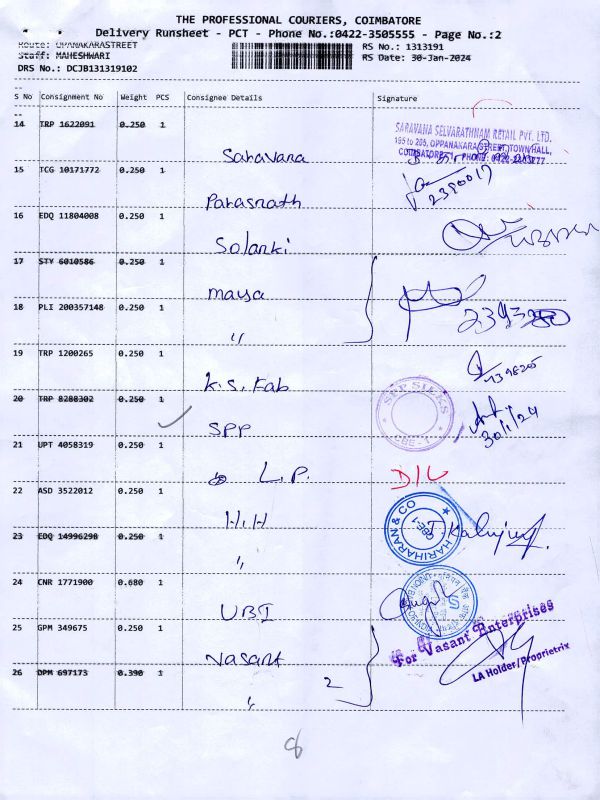 THE PROFESSIONAL COURIERS, COIMBATORE
Delivery Runsheet - PCT - Phone No.:0422-3505555 - Page No.:2
Route: OPANAKARASTREET
RS No.: 1313191
Staff: MAHESHWARI
RS Date: 30-Jan-2024
DRS No.: DCJB131319102
S No Consignment No Weight PCS Consignee Details Signature
14 TRP 1622091 0.250 1
SARAVANA SELVARATHNAM RETAIL PVT. LTD.
195 to 205, OPPANAKARA STREET, TOWN HALL,
Saravana
15 TCG 10171772 0.250 1
Parasnath
16 EDQ 11804008 0.250 1
Solanki
17 STY 6010586 0.250 1
maya
18 PLI 200357148 0.250 1
"
19 TRP 1200265 0.250 1
K.S. Fab
20 TRP 8280302 0.250 1
SPP
SPP SILKS
CBE-1
30/1/24
21 UPT 4058319 0.250 1
L.P.
D/L
22 ASD 3522012 0.250 1
H.H
HARIHARAN & CO
CBE-1
23 EDQ 14996298 0.250 1
"
24 CNR 1771900 0.680 1
UBI
25 GPM 349675 0.250 1
Vasant
For Vasant Enterprises
26 DPM 697173 0.390 1
2
LA Holder/Proprietrix
"
8